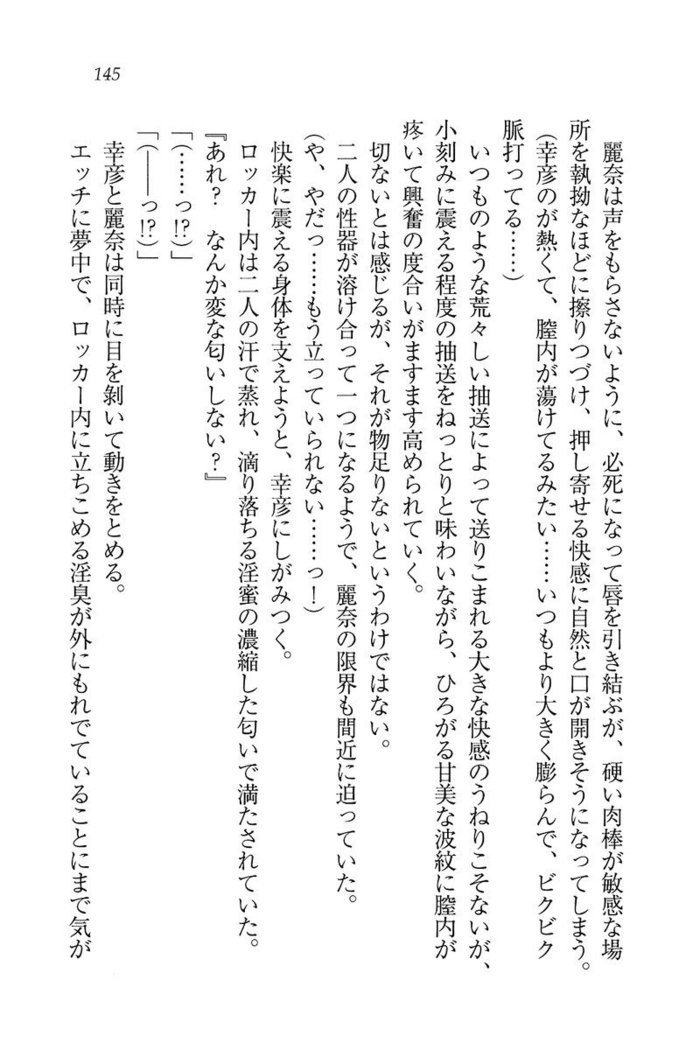 145
麗奈は声をもらさないように、必死になって唇を引き結ぶが、硬い肉棒が敏感な場
所を執拗なほどに擦りつづけ、押し寄せる快感に自然と口が開きそうになってしまう。
(幸彦のが熱くて、膣内が蕩けてるみたい……いつもより大きく膨らんで、ビクビク
脈打ってる……)
いつものような荒々しい抽送によって送りこまれる大きな快感のうねりこそないが、
小刻みに震える程度の抽送をねっとりと味わいながら、ひろがる甘美な波紋に膣内が
疼いて興奮の度合いがますます高められていく。
切ないとは感じるが、それが物足りないというわけではない。
二人の性器が溶け合って一つになるようで、麗奈の限界も間近に迫っていた。
(や、やだっ……もう立っていられない……っ！)
快楽に震える身体を支えようと、幸彦にしがみつく。
ロッカー内は二人の汗で蒸れ、滴り落ちる淫蜜の濃縮した匂いで満たされていた。
『あれ？　なんか変な匂いしない？』
「(……っ!?)」
「(――っ!?)」
幸彦と麗奈は同時に目を剝いて動きをとめる。
エッチに夢中で、ロッカー内に立ちこめる淫臭が外にもれでていることにまで気が